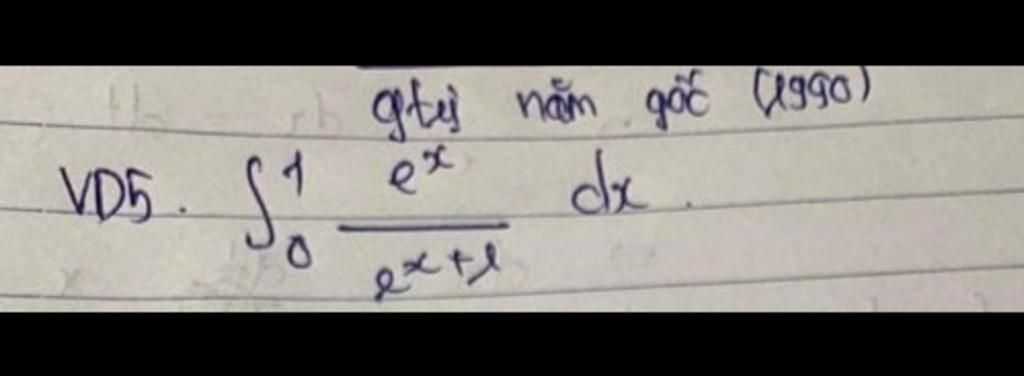 gtrị năm gốc (1990)
VD5. ∫₀¹ eˣ / eˣ⁺¹ dx.